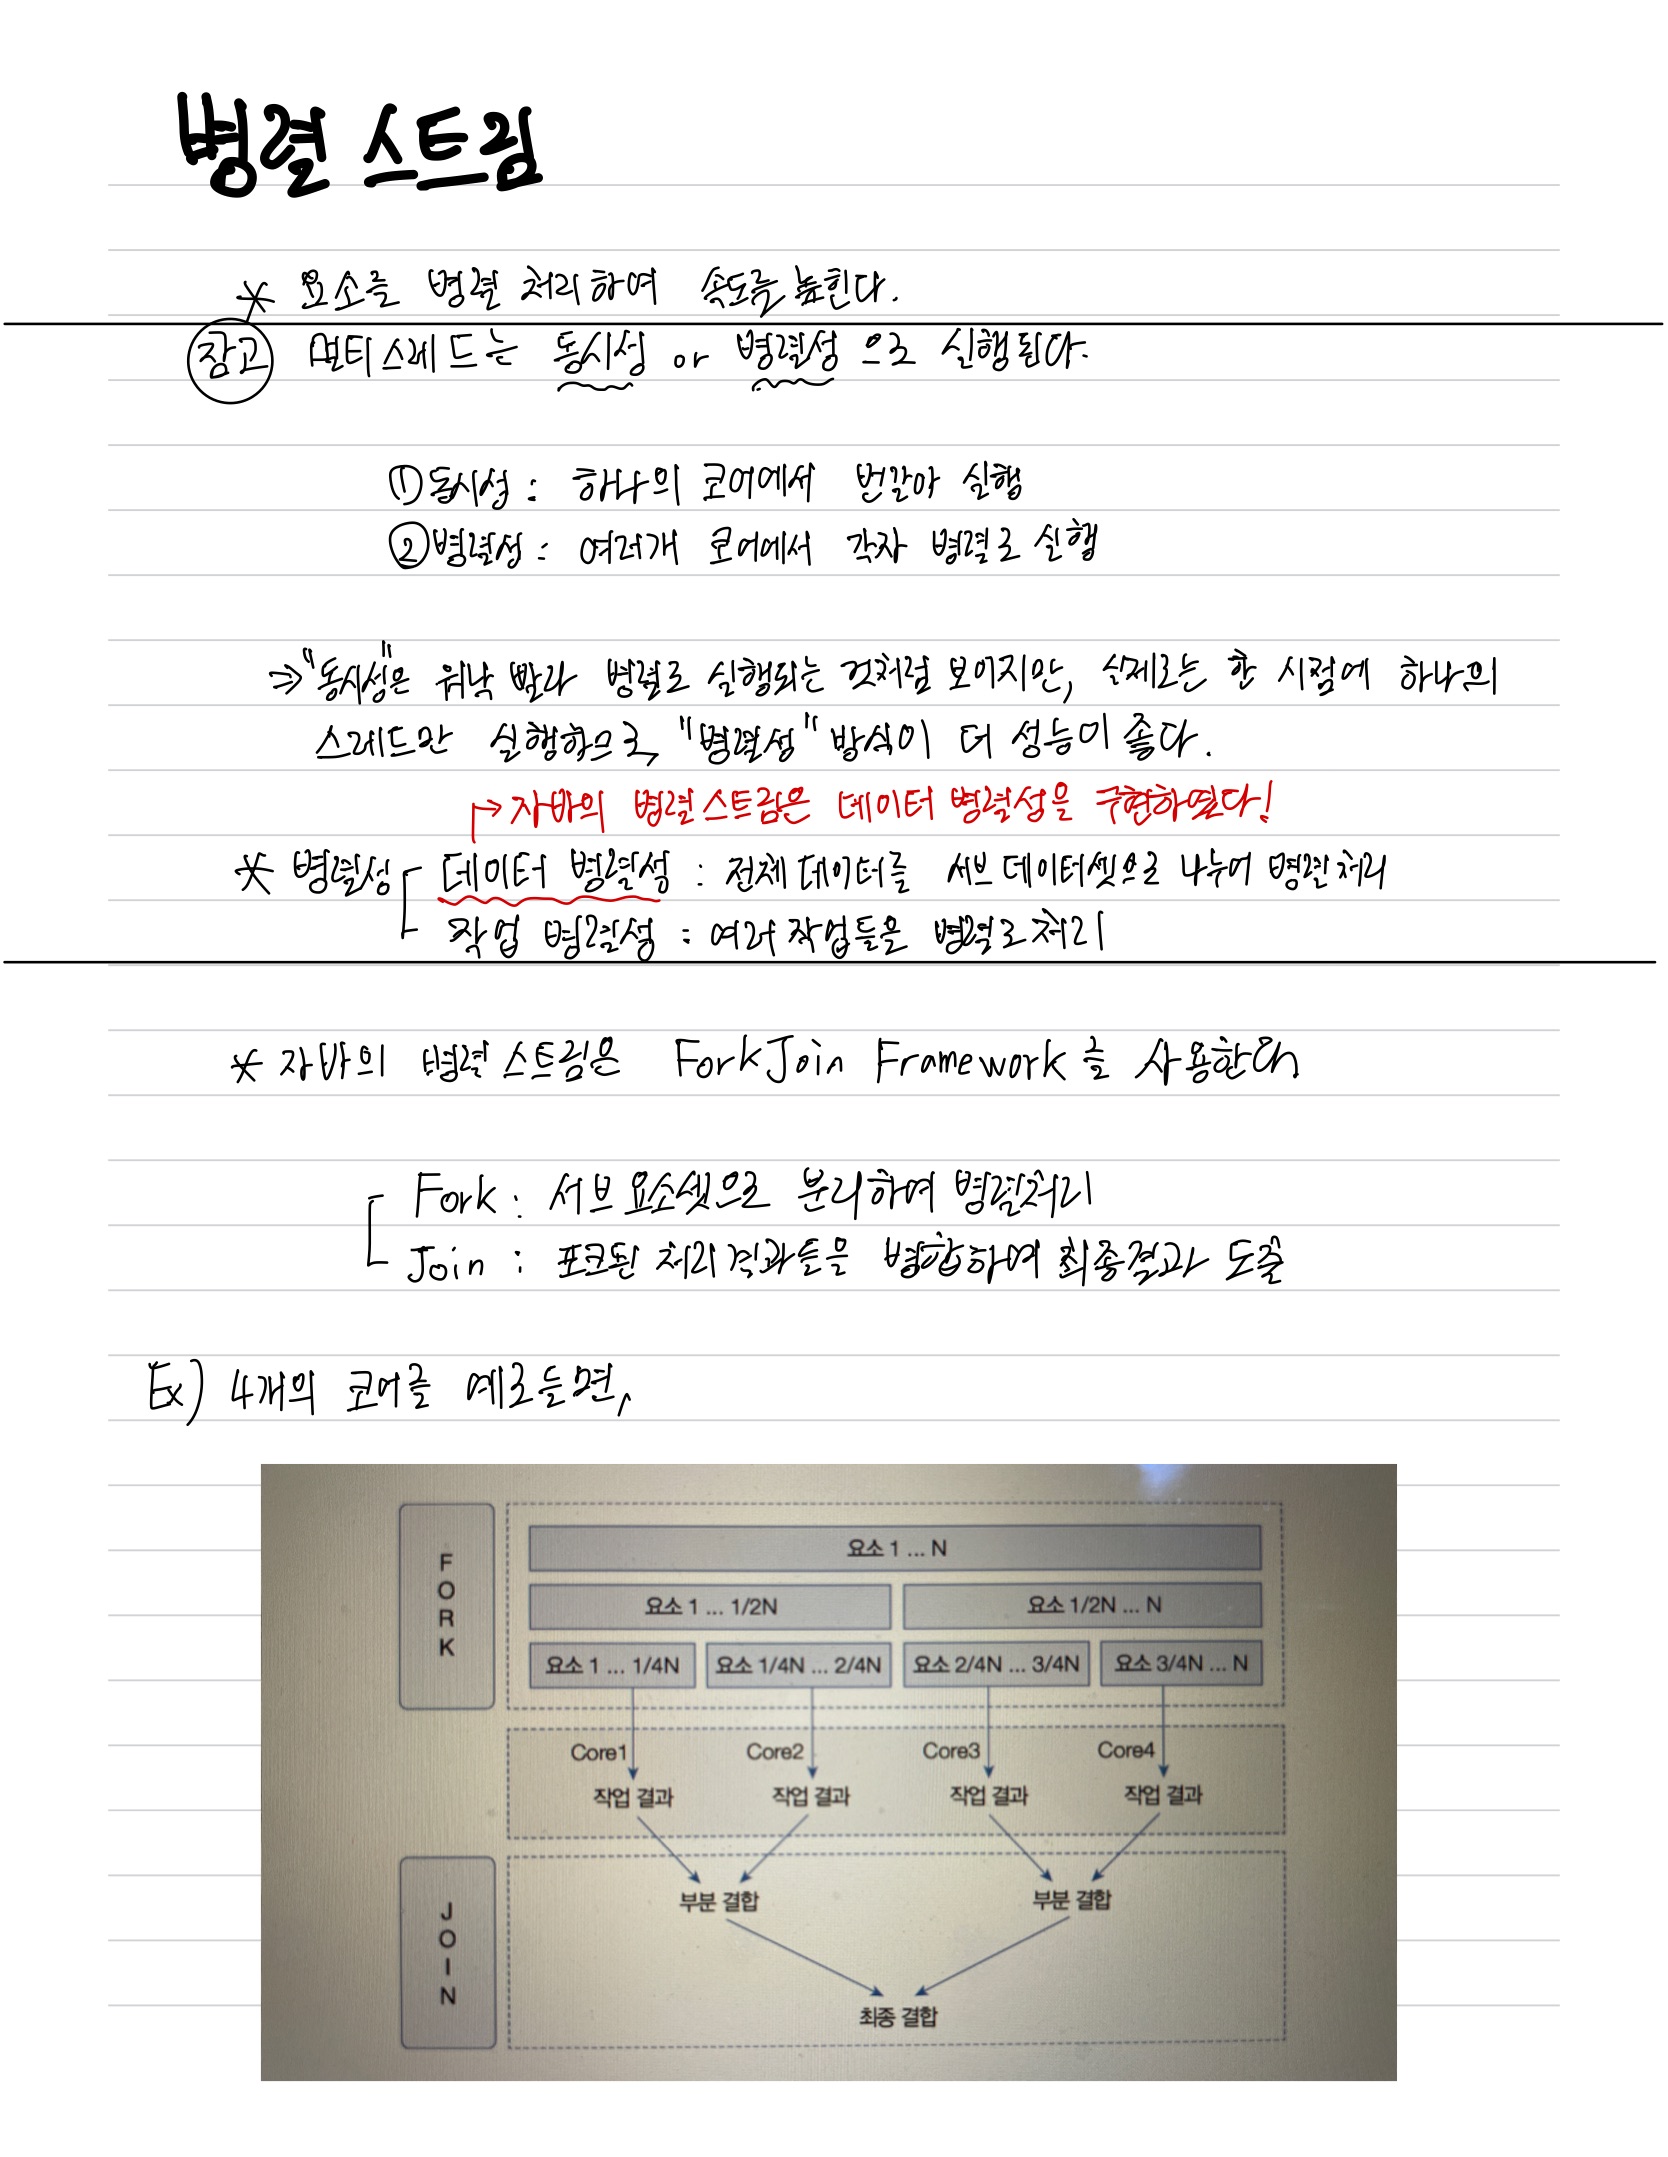 병렬 스트림
* 요소를 병렬 처리하여 속도를 높힌다.
참고 멀티스레드는 동시성 or 병렬성 으로 실행된다.
① 동시성 : 하나의 코어에서 번갈아 실행
② 병렬성 : 여러개 코어에서 각자 병렬로 실행
⇒ "동시성"은 워낙 빨라 병렬로 실행되는 것처럼 보이지만, 실제로는 한 시점에 하나의
스레드만 실행함으로, "병렬성" 방식이 더 성능이 좋다.
↱ 자바의 병렬 스트림은 데이터 병렬성을 구현하였다!
* 병렬성 데이터 병렬성 : 전체 데이터를 서브 데이터셋으로 나누어 병렬처리
작업 병렬성 : 여러 작업들을 병렬로 처리
* 자바의 병렬 스트림은 ForkJoin Framework를 사용한다
Fork : 서브 요소셋으로 분리하여 병렬처리
Join : 포크된 처리 결과들을 병합하여 최종결과 도출
Ex) 4개의 코어를 예로들면,
FORK
요소 1 ... N
요소 1 ... 1/2N 요소 1/2N ... N
요소 1 ... 1/4N 요소 1/4N ... 2/4N 요소 2/4N ... 3/4N 요소 3/4N ... N
Core1 Core2 Core3 Core4
작업 결과 작업 결과 작업 결과 작업 결과
JOIN
부분 결합 부분 결합
최종 결합